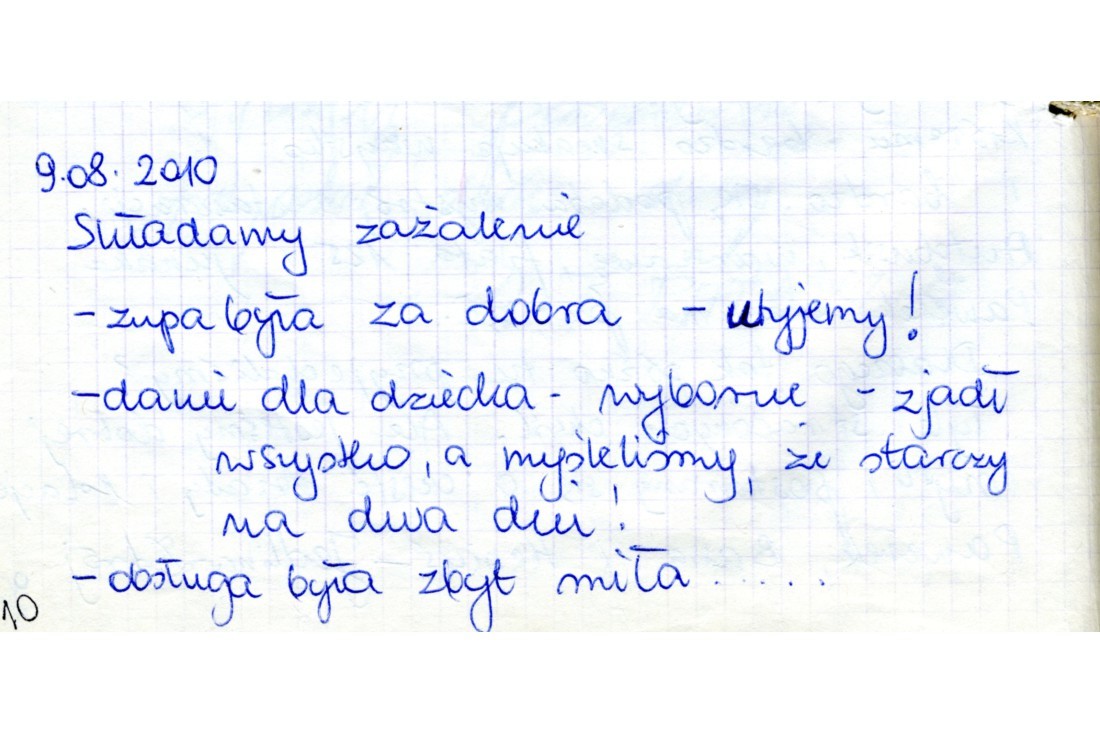 9.08.2010
Składamy zażalenie
- zupa była za dobra - utyjemy!
- danie dla dziecka - wyborne - zjadł
wszystko, a myśleliśmy, że starczy
na dwa dni!
- obsługa była zbyt miła......
10